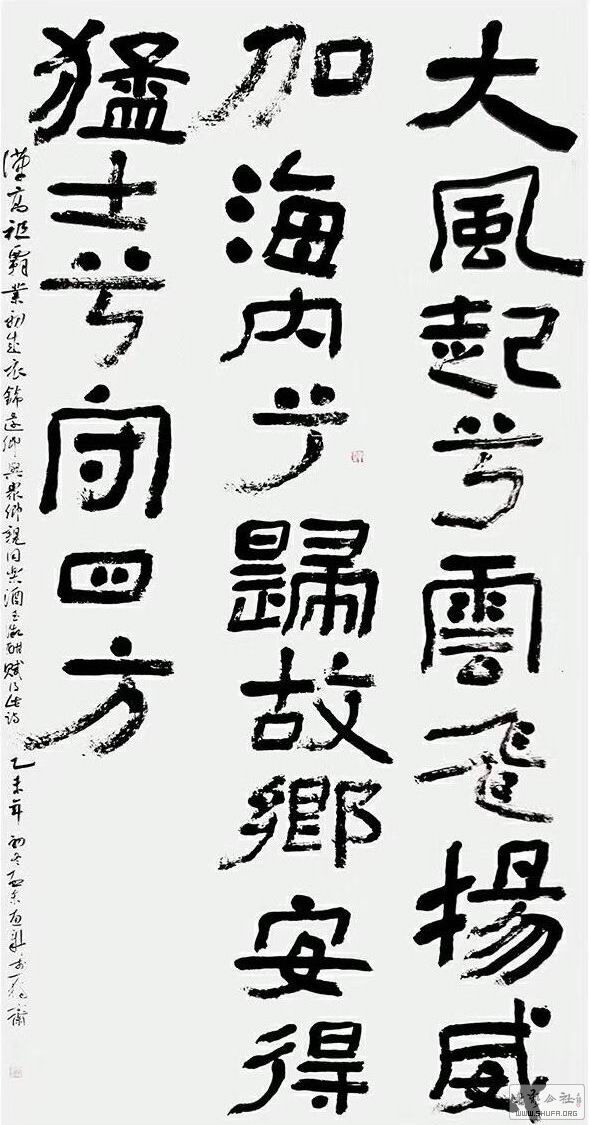 大風起兮雲飛揚威
加海内兮歸故鄉安得
猛士兮守四方
漢高祖霸業初成衣錦還鄉與眾鄉親同樂酒至微酣賦得此詩
乙未年初冬
WWW.SHUFA.ORG